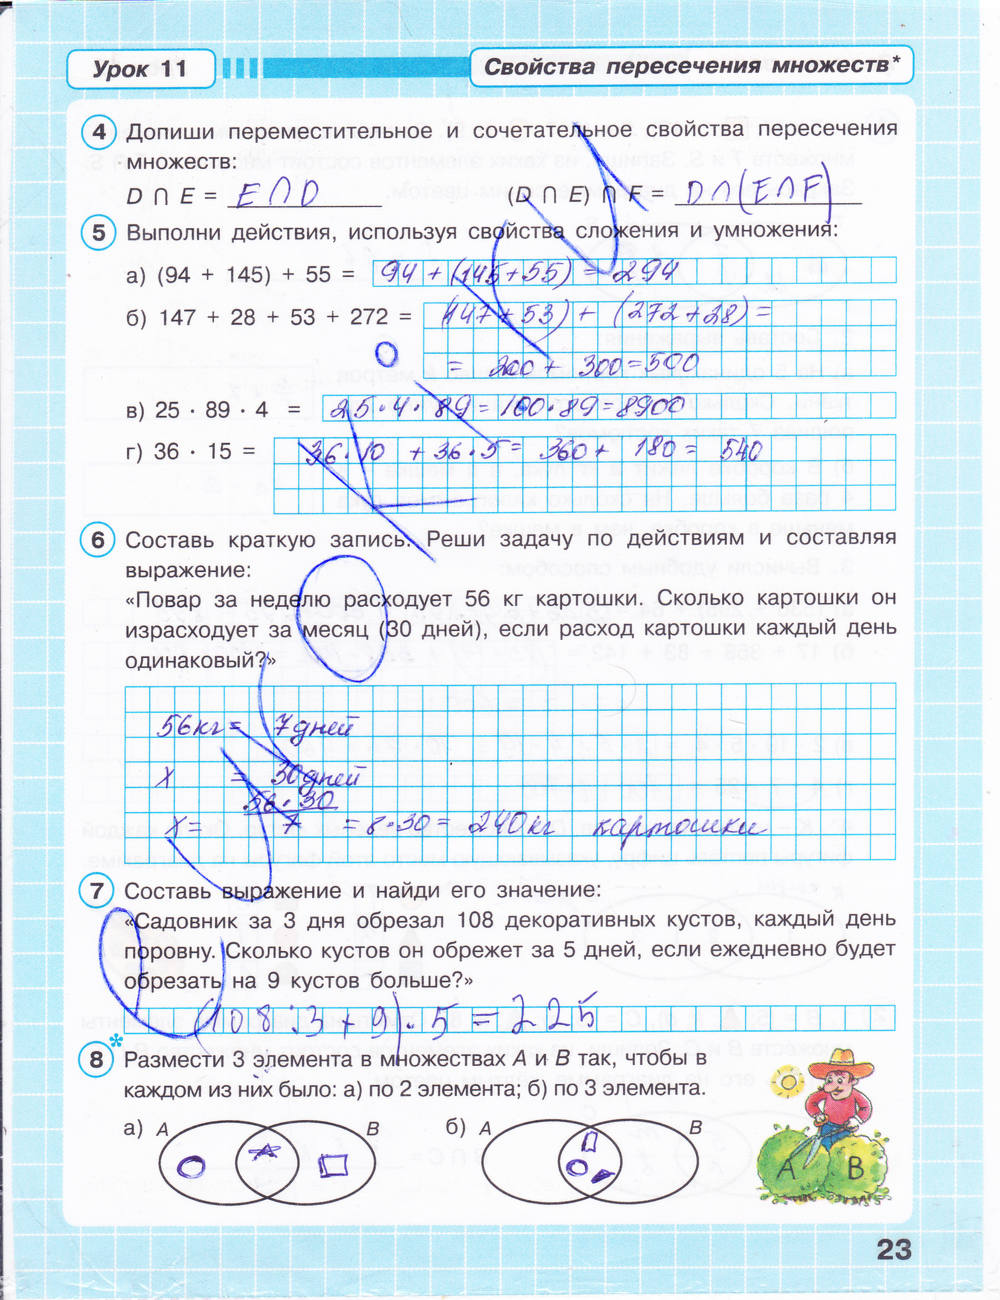 Урок 11
Свойства пересечения множеств*
4 Допиши переместительное и сочетательное свойства пересечения
множеств:
D ∩ E = E ∩ D (D ∩ E) ∩ F = D ∩ (E ∩ F)
5 Выполни действия, используя свойства сложения и умножения:
а) (94 + 145) + 55 = 94 + (145 + 55) = 294
б) 147 + 28 + 53 + 272 = (147 + 53) + (272 + 28) =
= 200 + 300 = 500
в) 25 · 89 · 4 = 25 · 4 · 89 = 100 · 89 = 8900
г) 36 · 15 = 36 · 10 + 36 · 5 = 360 + 180 = 540
6 Составь краткую запись. Реши задачу по действиям и составляя
выражение:
«Повар за неделю расходует 56 кг картошки. Сколько картошки он
израсходует за месяц (30 дней), если расход картошки каждый день
одинаковый?»
56 кг = 7 дней
х = 30 дней
56 · 30
х = 7 = 8 · 30 = 240 кг картошки
7 Составь выражение и найди его значение:
«Садовник за 3 дня обрезал 108 декоративных кустов, каждый день
поровну. Сколько кустов он обрежет за 5 дней, если ежедневно будет
обрезать на 9 кустов больше?»
(108 : 3 + 9) · 5 = 225
8* Размести 3 элемента в множествах A и B так, чтобы в
каждом из них было: а) по 2 элемента; б) по 3 элемента.
а) A B б) A B
A B
23